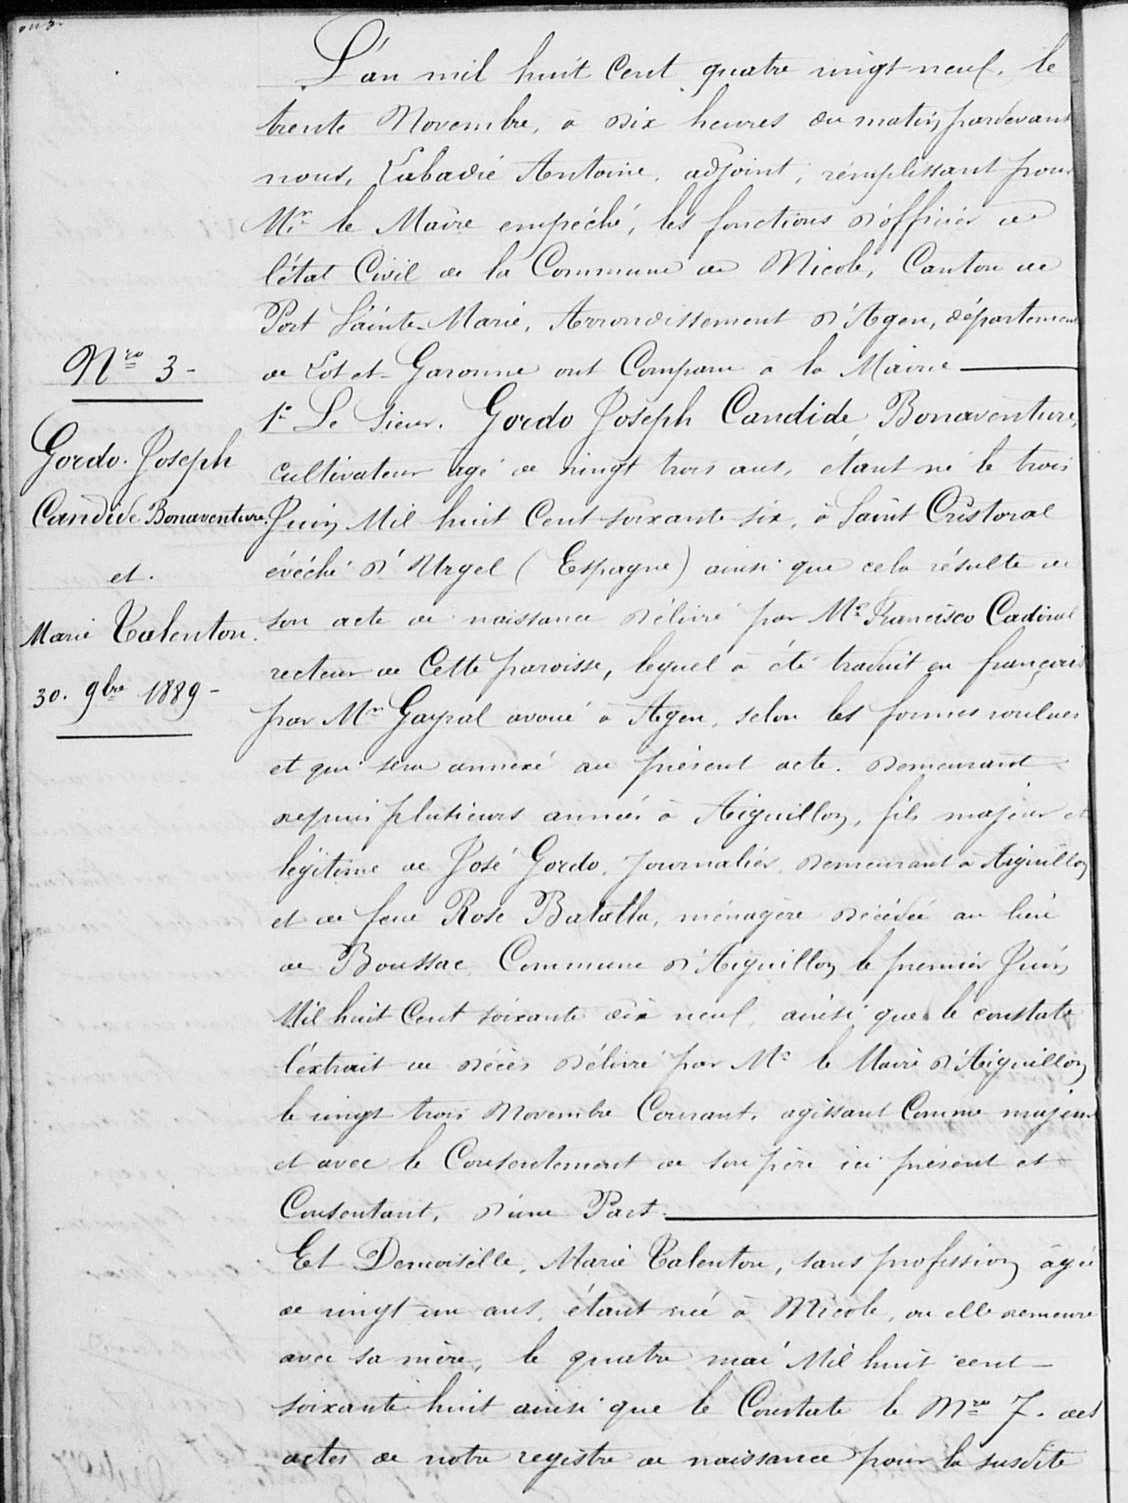 L'án mil huit Cent quatre vingt neuf, le
trente Novembre, à dix heures du matin, pardevant
nous, Labadié Antoine, adjoint, remplissant pour
Mr le Maire empéché, les fonctions d'officier de
l'état Civil de la Commune de Nicole, Canton de
Port Sainte-Marie, Arrondissement d'Agen, département
de Lot et Garonne ont Comparu à la Mairie
Nro 3-
1o Le Sieur. Gordo Joseph Candide Bonaventure,
Gordo. Joseph
cultivateur agé de vingt trois ans, étant né le trois
Candide Bonaventure.
Juin Mil huit Cent soixante six, à Saint Cristoval
et.
évéché d'Urgel (Espagne) ainsi que cela résulte de
Marie Talenton.
son acte de naissance délivré par Mr Francisco Cadinal
recteur de Cette paroisse, lequel a été traduit en français
30. 9bre 1889-
par Mr Gayral avoué à Agen, selon les formes voulues
et qui sera annexé au présent acte. demeurant
depuis plusieurs années à Aiguillon, fils majeur et
légitime de José Gordo, Journalier, demeurant à Aiguillon
et de feue Rose Batalla, ménagère décédée au lieu
de Boussac, Commune d'Aiguillon le premier Juin
Mil huit Cent soixante dix neuf, ainsi que le constate
l'extrait de décès délivré par Mr le Maire d'Aiguillon
le vingt trois Novembre Courant, agissant Comme majeur
et avec le Consentement de son père ici présent et
Consentant, d'une Part.
Et Demoiselle, Marie Talenton, sans profession âgée
de vingt un ans, étant née à Nicole, ou elle demeure
avec sa mère, le quatre mai Mil huit cent
soixante huit ainsi que le Constate le Nro 7. des
actes de notre registre de naissance pour la susdite